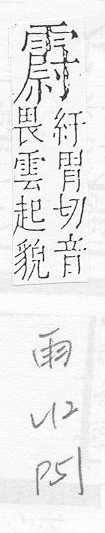 霨
紆胃切音
畏雲起貌
雨
V12
P51